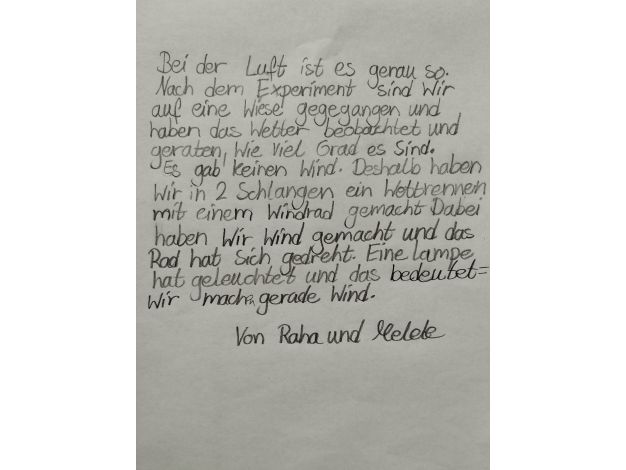 Bei der Luft ist es gerau so.
Nach dem Experiment sind Wir
auf eine Wiese gegegangen und
haben das Wetter beobachtet und
geraten, Wie viel Grad es Sind.
Es gab keinen Wind. Deshalb haben
Wir in 2 Schlangen ein Wettrennen
mit einem Windrad gemacht Dabei
haben Wir Wind gemacht und das
Rad hat Sich gedreht. Eine lampe
hat geleuchtet und das bedeutet=
Wir machen gerade Wind.
Von Raha und Melek